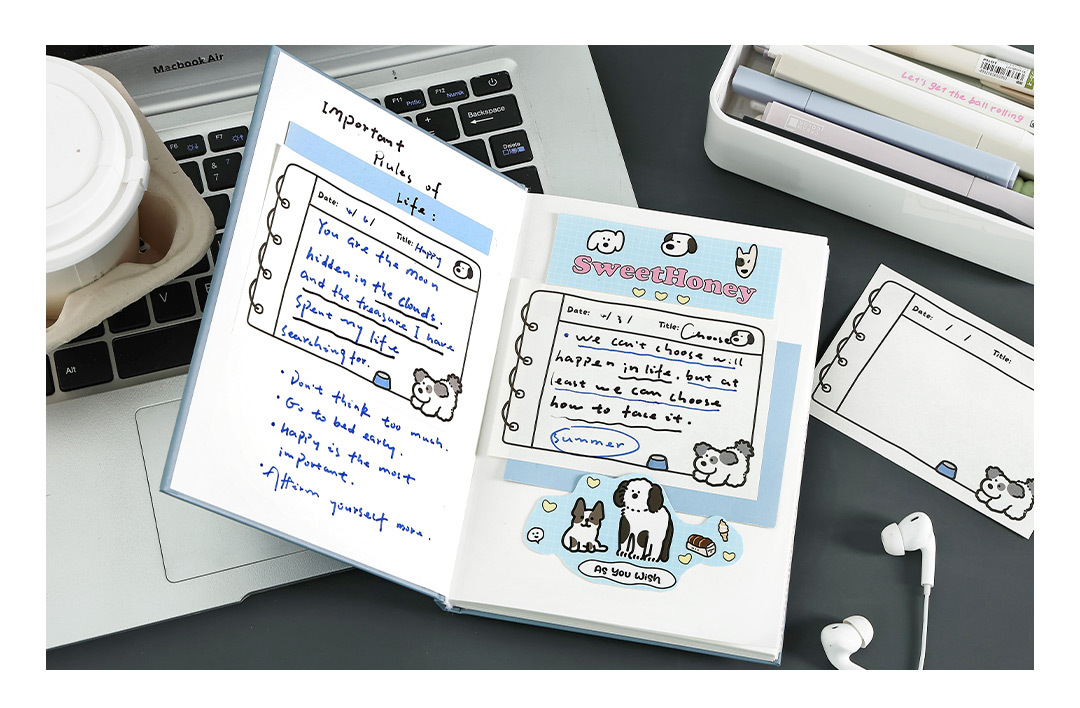 Macbook Air
F11 Prtsc
F12 Numlk
Backspace
Delete
F6
F7
&
7
V
Alt
Let's get the ball rolling
Important
Rules of
Life:
Date: 4/6/
Title: Happy
You are the moon
hidden in the clouds.
and the treasure I have
spent my life
searching for.
• Don't think too much.
• Go to bed early.
• Happy is the most
important.
• Affirm yourself more.
SweetHoney
Date: 4/3/
Title: Choose
• we can't choose will
happen in life, but at
least we can choose
how to face it.
Summer
As You Wish
Date: / /
Title: